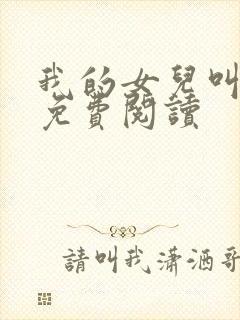 我的女兒叫
免費閱讀
請叫我瀟洒哥